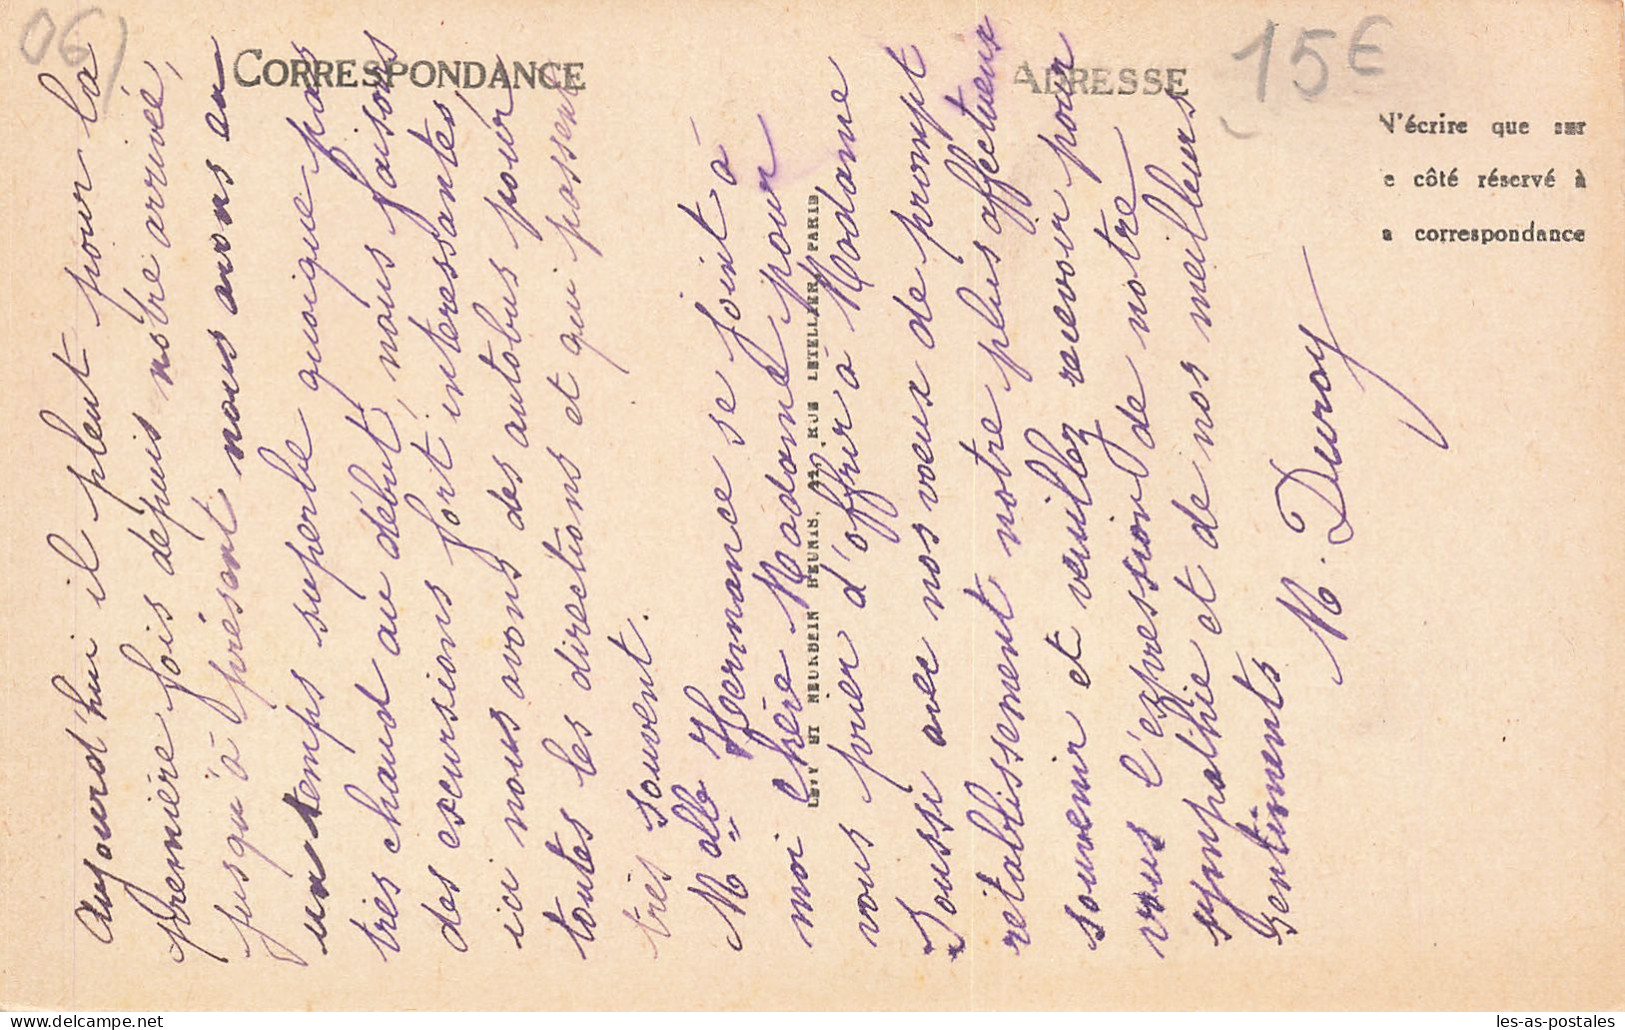 06)
CORRESPONDANCE
ADRESSE
15€
N'écrire que sur
e côté réservé à
a correspondance
Aujourd'hui il pleut pour la
première fois depuis notre arrivée,
jusqu'à présent nous avons eu
un temps superbe quoique pas
très chaud au début, nous faisons
des excursions fort intéressantes,
ici nous avons des autobus pour
toutes les directions et qui passent
très souvent.
Melle Hermance se joint à
moi chère Madame pour
vous prier d'offrir à Madame
Soussi avec nos voeux de prompt
rétablissement notre plus affectueux
souvenir et veuillez recevoir pour
vous l'expression de notre
sympathie et de nos meilleurs
sentiments
M. Duroy
LEVY ET NEURDEIN REUNIS, 44, RUE LETELLIER, PARIS
les-as-postales